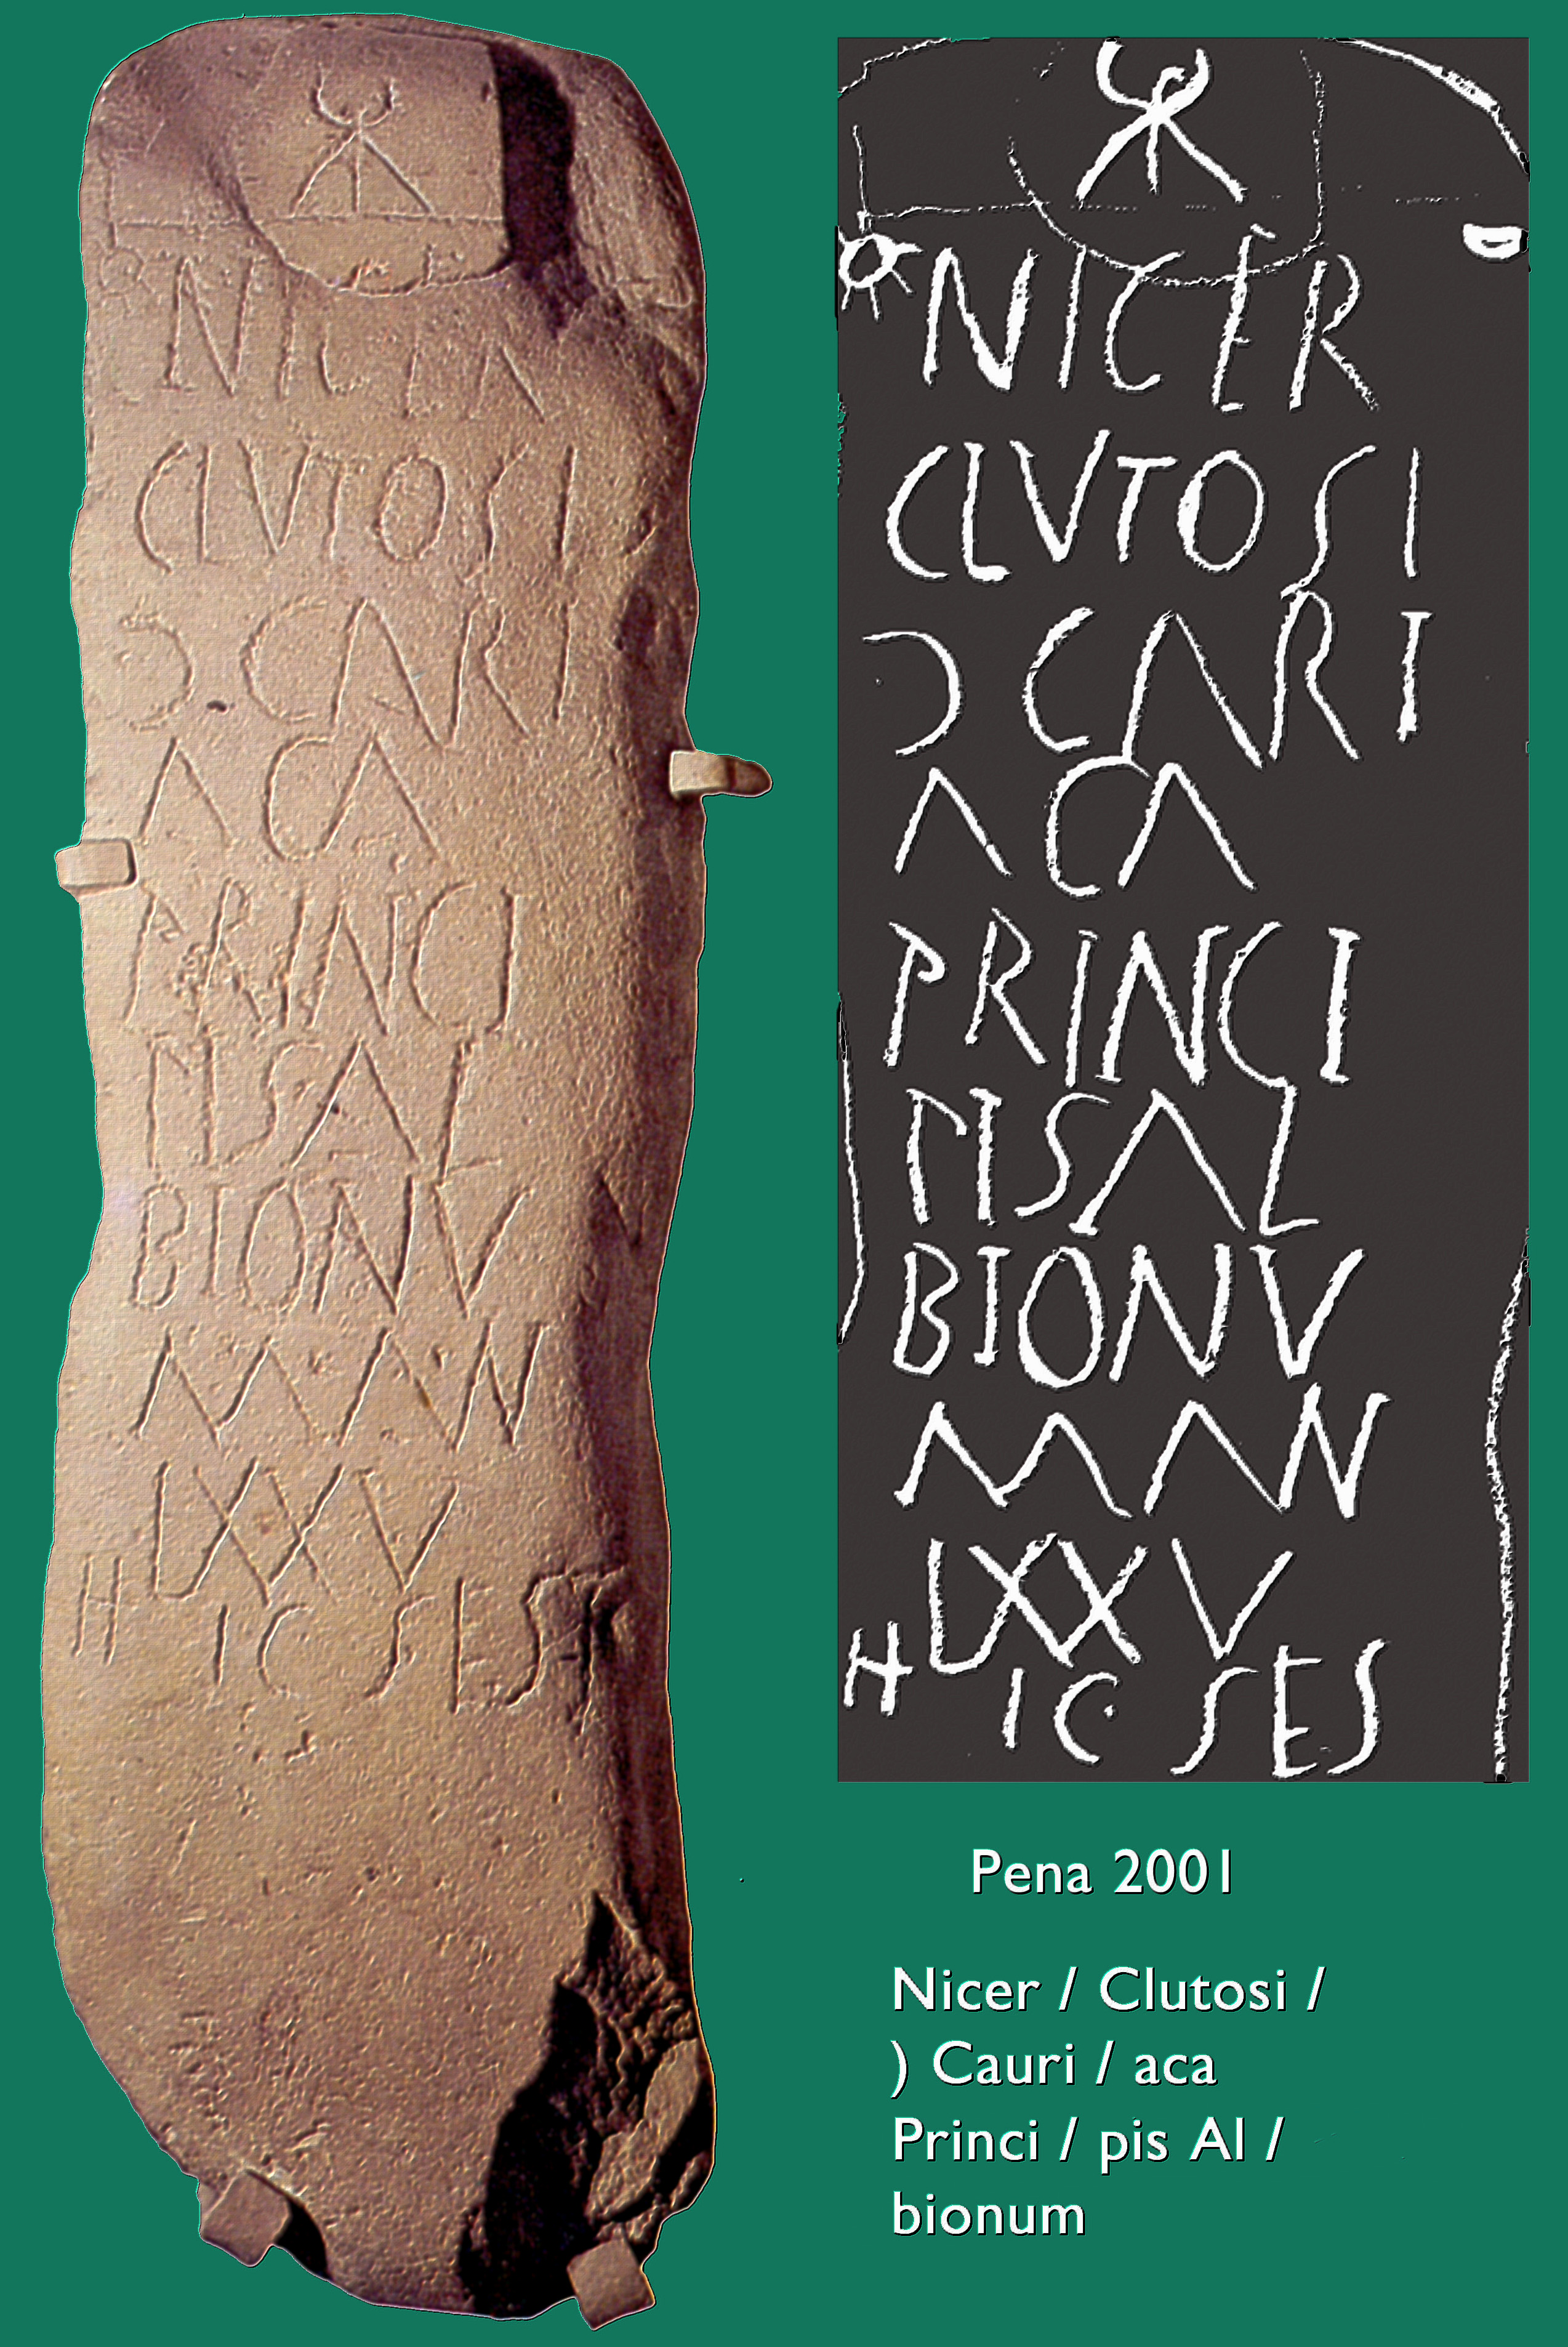 NICER
CLVTOSI
Ɔ CARI
ACA
PRINCI
PISAL
BIONV
MAN
LXXV
HIC SEST
NICER
CLVTOSI
Ɔ CARI
ACA
PRINCI
PISAL
BIONV
MAN
LXXV
HIC· SES
Pena 2001
Nicer / Clutosi /
) Cauri / aca
Princi / pis Al /
bionum